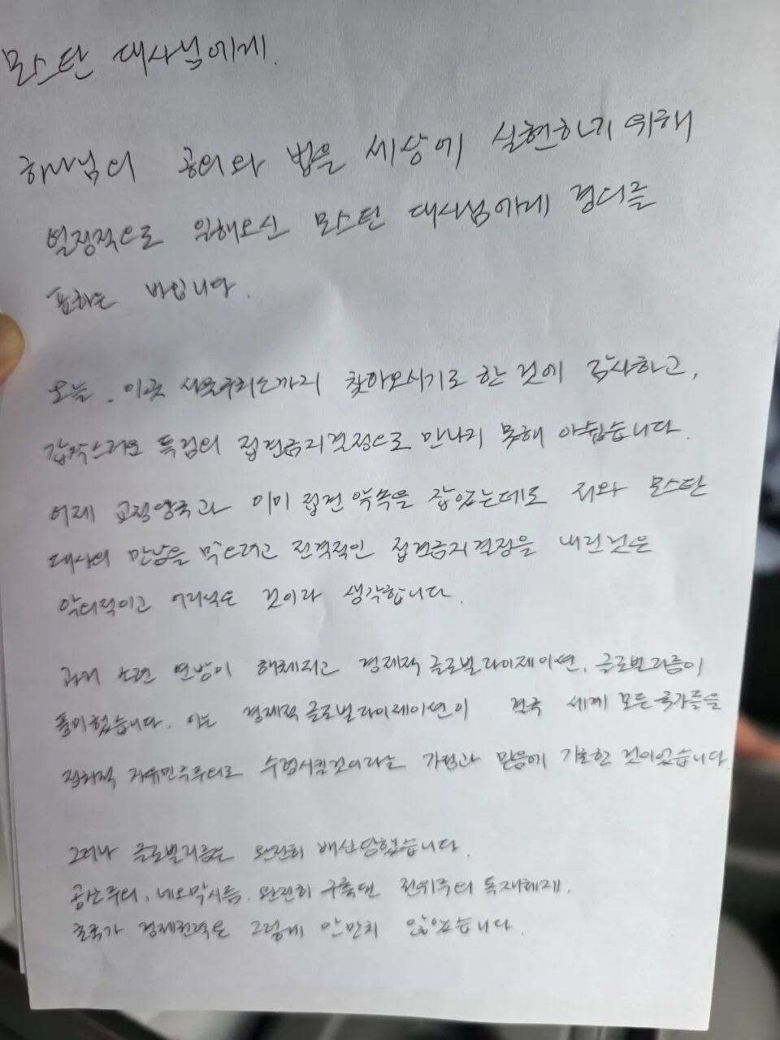 모스탄 대사님에게.
하나님의 공의와 법을 세상에 실현하기 위해
열정적으로 일해오신 모스탄 대사님에게 경의를
표하는 바입니다.
오늘, 이곳 서울구치소까지 찾아오시기로 한 것에 감사하고,
갑작스러운 특검의 접견금지결정으로 만나지 못해 아쉽습니다.
어제 교정당국과 이미 접견 약속을 잡았는데도 저와 모스탄
대사의 만남을 막으려고 전격적인 접견금지결정을 내린것은
악의적이고 어리석은 것이라 생각합니다.
과거 소련 연방이 해체되고 경제적 글로벌라이제이션, 글로벌리즘이
풍미했습니다. 이는 경제적 글로벌라이제이션이 결국 세계 모든 국가들을
정치적 자유민주주의로 수렴시킬것이라는 가정과 믿음에 기초한 것이었습니다
그러나 글로벌리즘은 완전히 배신당했습니다.
공산주의, 네오막시즘, 완전히 구축된 전체주의 독재체제,
경제권력은 그렇게 만만치 않았습니다.